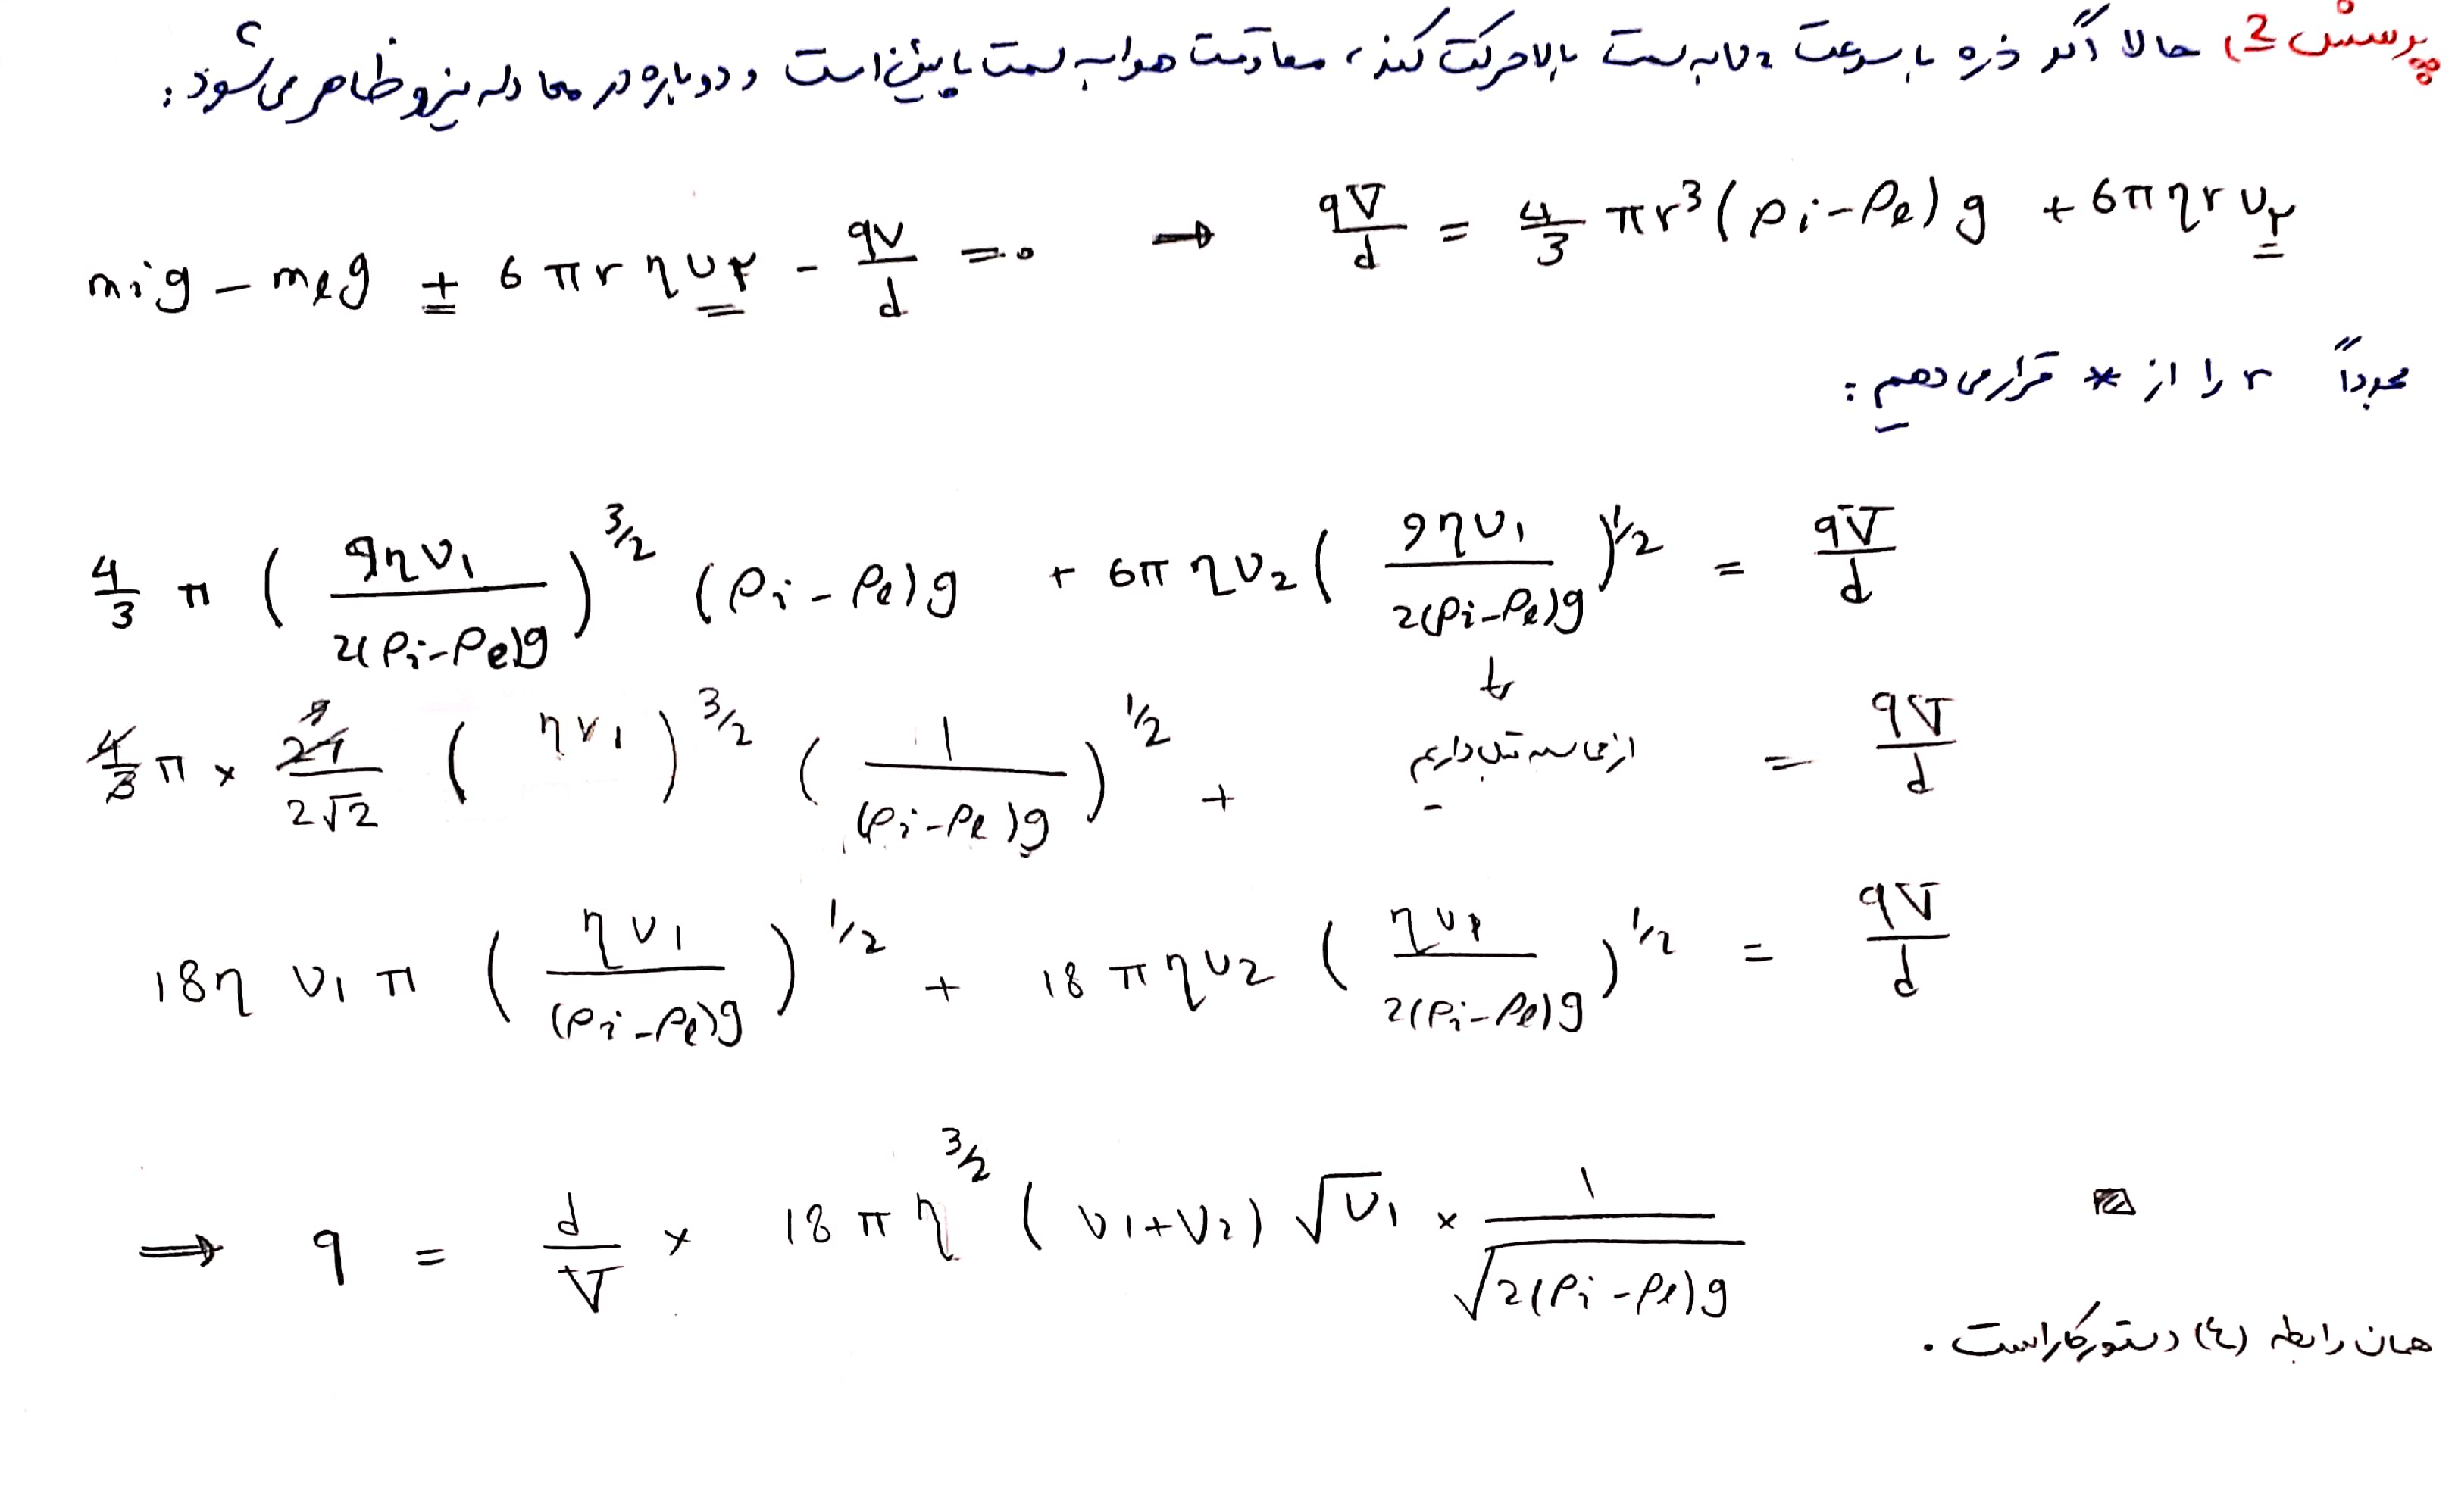 پرسش 2) حالا اگر ذره با سرعت v2 به سمت بالا حرکت کند، مقاومت هوا به سمت پایین است و دوباره در معادله نیرو ظاهر می شود:
mig - meg + 6πrηv۲ - qV/d = ۰ → qV/d = 4/3 πr^3(ρi-ρe)g + 6πηrv۲
مجدداً r را از * قرار می دهیم:
4/3 π (9ηv1 / 2(ρi-ρe)g)^3/2 (ρi-ρe)g + 6πηv2 (9ηv1 / 2(ρi-ρe)g)^1/2 = qV/d
4/3 π × 27/2√2 (ηv1)^3/2 (1/(ρi-ρe)g)^1/2 + = qV/d
18ηv1π (ηv1/(ρi-ρe)g)^1/2 + 18πηv2 (ηv1/2(ρi-ρe)g)^1/2 = qV/d
⇒ q = d/V × 18πη^3/2 (v1+v2) √v1 × 1/√2(ρi-ρe)g
همان رابطه (٤) دستور کار است.